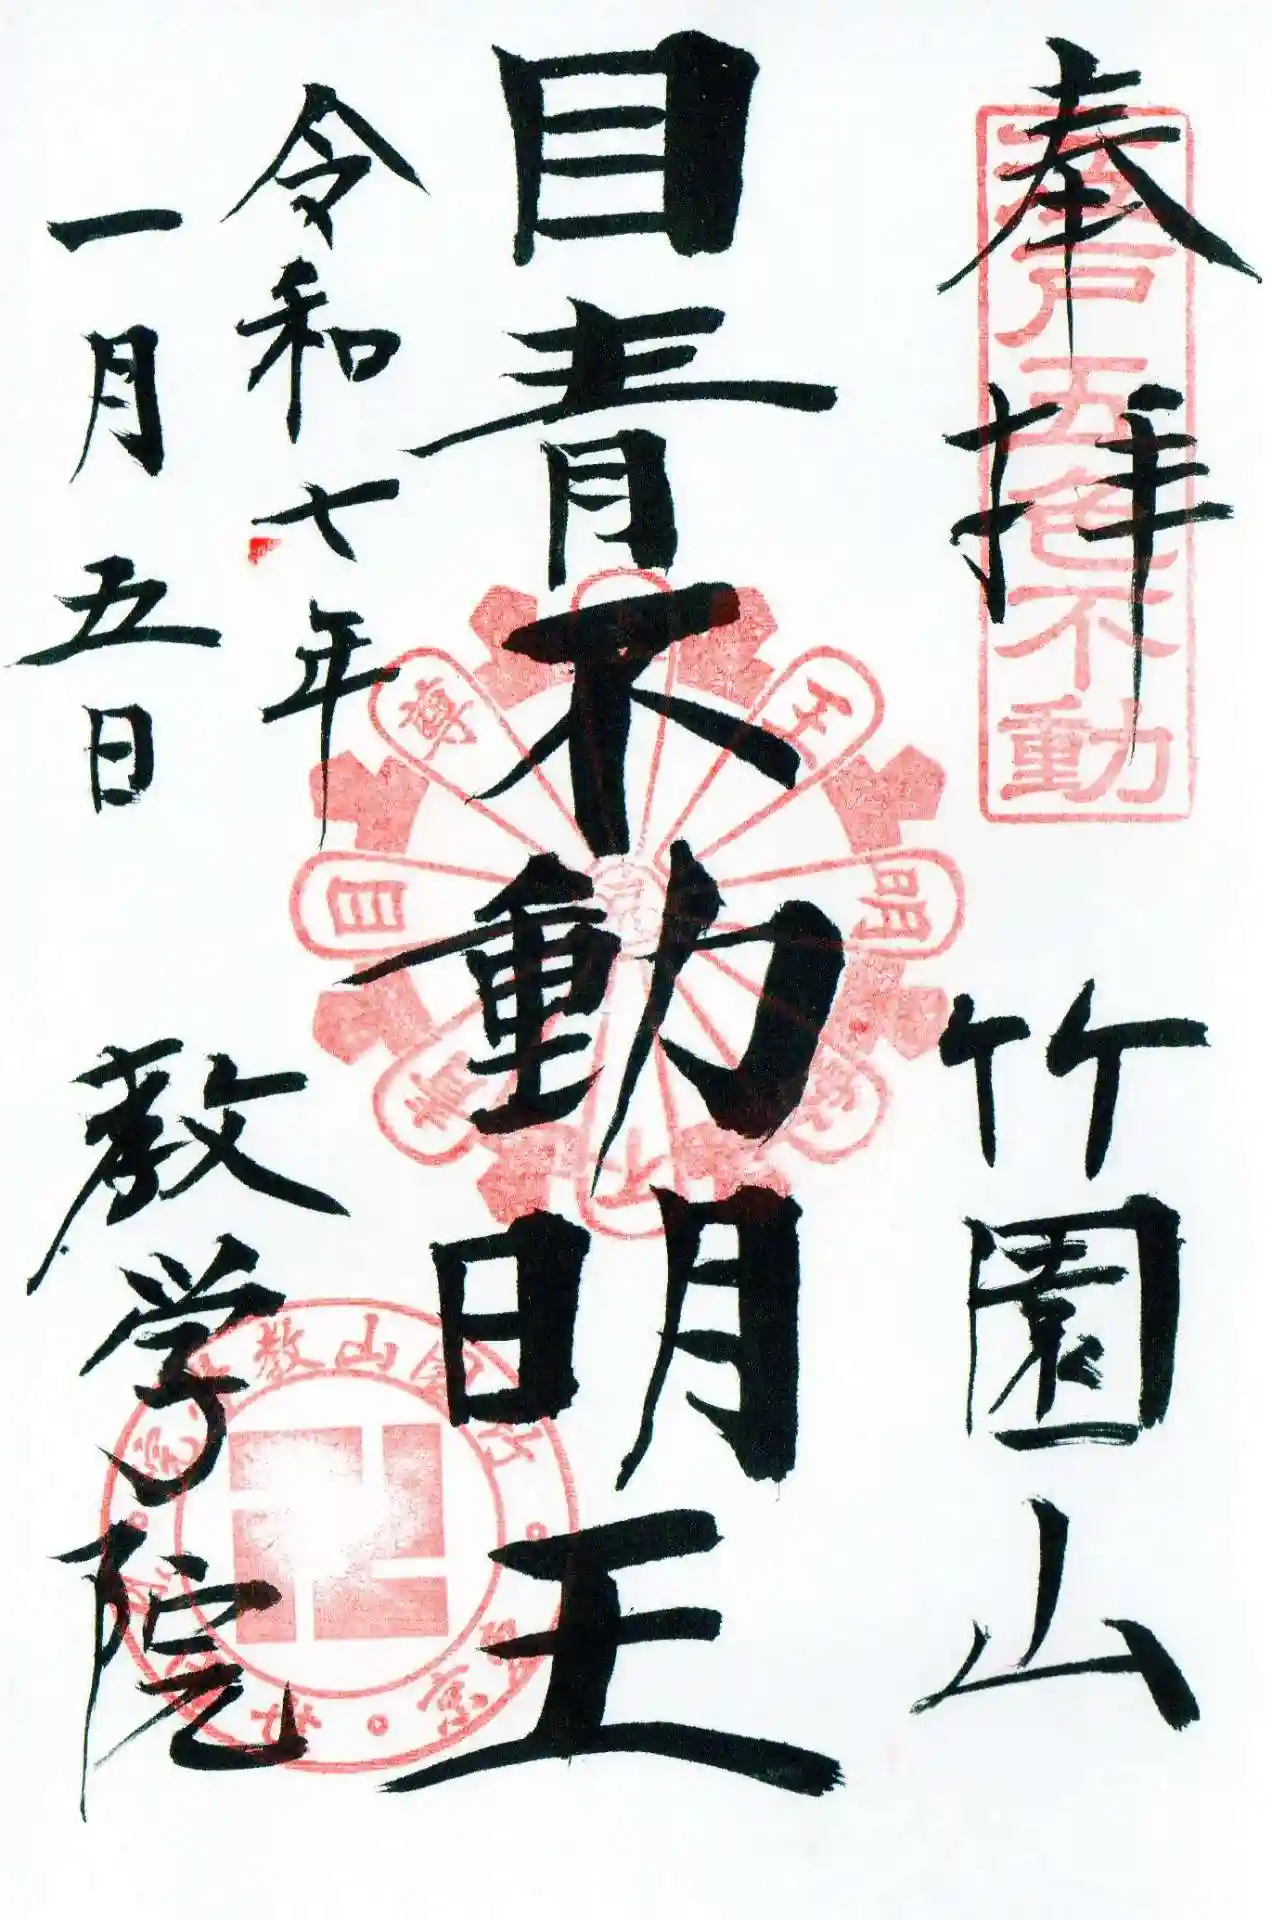 奉拝
江戸五色不動
竹園山
目青不動明王
令和七年
一月五日
教学院